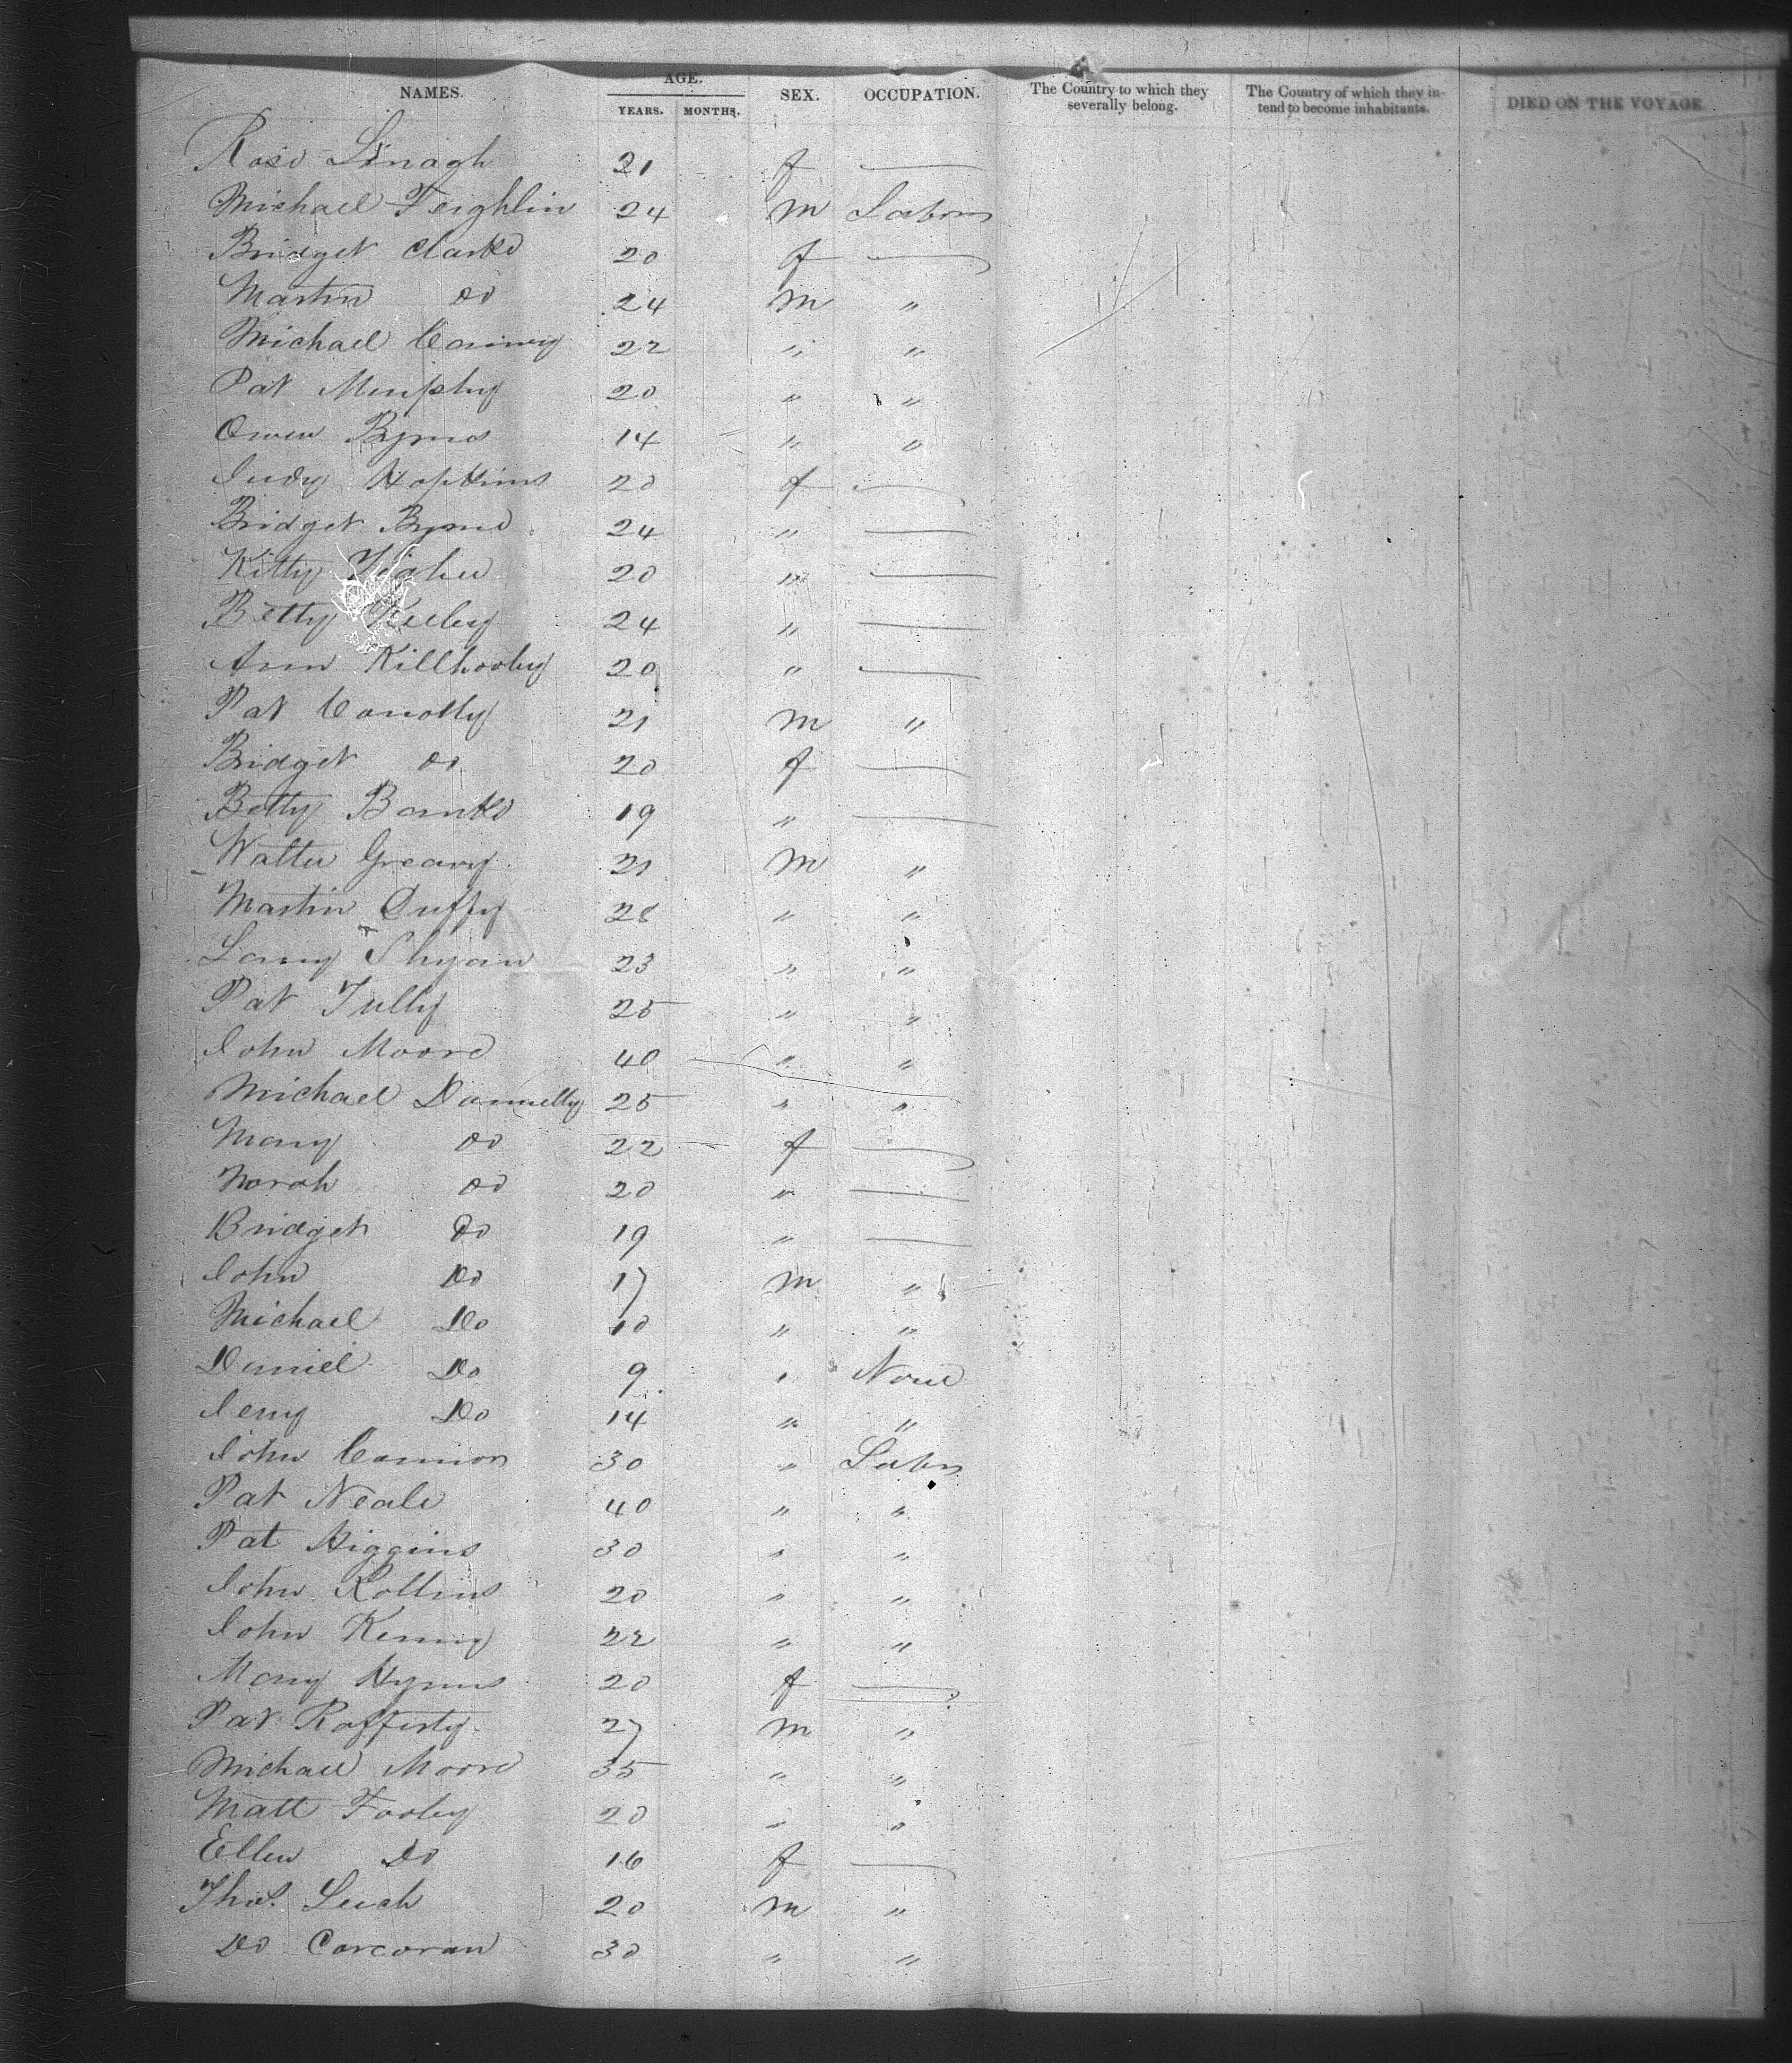 NAMES. AGE. YEARS. MONTHS. SEX. OCCUPATION. The Country to which they severally belong. The Country of which they intend to become inhabitants. DIED ON THE VOYAGE
Rose Linagh 21 f —
Michael Feighlin 24 m Laborer
Bridget Clarke 20 f —
Martin do 24 m "
Michael 22 " "
Pat Murphy 20 " "
Owen Byrnes 14 " "
Judy Hopkins 20 f —
Bridget Byrne 24 " —
Kitty 20 " —
Betty 24 " —
Ann Killhooley 20 " —
Pat Conolly 21 m "
Bridget do 20 f —
Betty Banks 19 " —
Walter Greary 21 m "
Martin Duffy 28 " "
Larry 23 " "
Pat Tully 25 " "
John Moore 40 " "
Michael Donnelly 25 " "
Mary do 22 f —
Norah do 20 " —
Bridget Do 19 " —
John Do 17 m "
Michael Do 10 " "
Daniel Do 9 " None
Jerry Do 14 " "
John Cannion 30 " Labr
Pat Neale 40 " "
Pat Higgins 30 " "
John Rollins 20 " "
John Kenny 22 " "
Mary Hynes 20 f —
Pat Rafferty 27 m "
Michael Moore 35 " "
Matt Fooley 20 " "
Ellen Do 16 f —
Thos. Leach 20 m "
Do Corcoran 30 " "